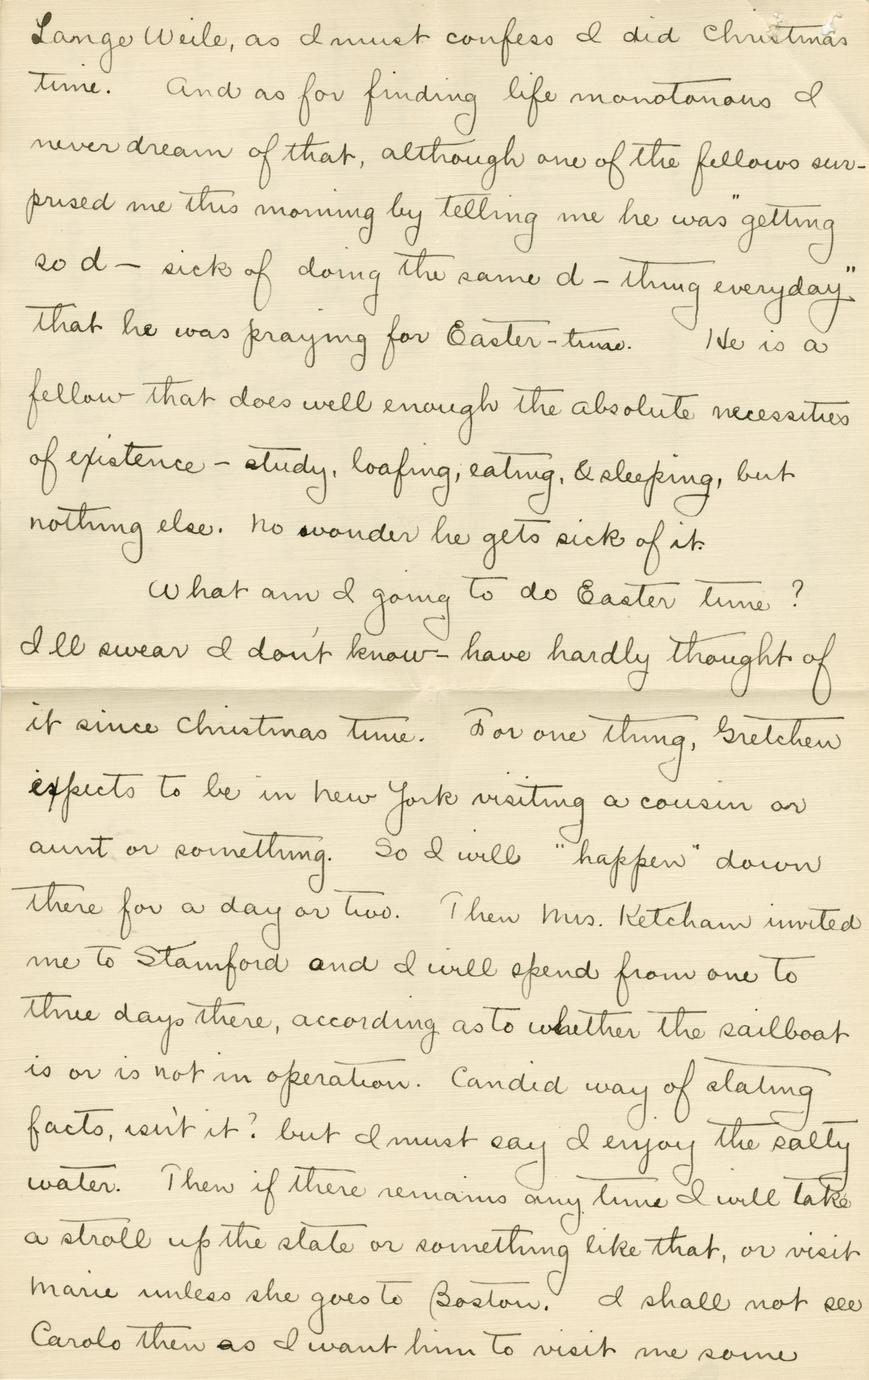 Lange Weile, as I must confess I did Christmas
time. And as for finding life monotonous I
never dream of that, although one of the fellows sur-
prised me this morning by telling me he was "getting
so d— sick of doing the same d— thing everyday"
that he was praying for Easter-time. He is a
fellow that does well enough the absolute necessities
of existence – study, loafing, eating, & sleeping, but
nothing else. No wonder he gets sick of it.
What am I going to do Easter time?
I'll swear I don't know – have hardly thought of
it since Christmas time. For one thing, Gretchen
expects to be in New York visiting a cousin or
aunt or something. So I will "happen" down
there for a day or two. Then Mrs. Ketcham invited
me to Stamford and I will spend from one to
three days there, according as to whether the sailboat
is or is not in operation. Candid way of stating
facts, isn't it? but I must say I enjoy the salty
water. Then if there remains any time I will take
a stroll up the state or something like that, or visit
Marie unless she goes to Boston. I shall not see
Carolo then as I want him to visit me some